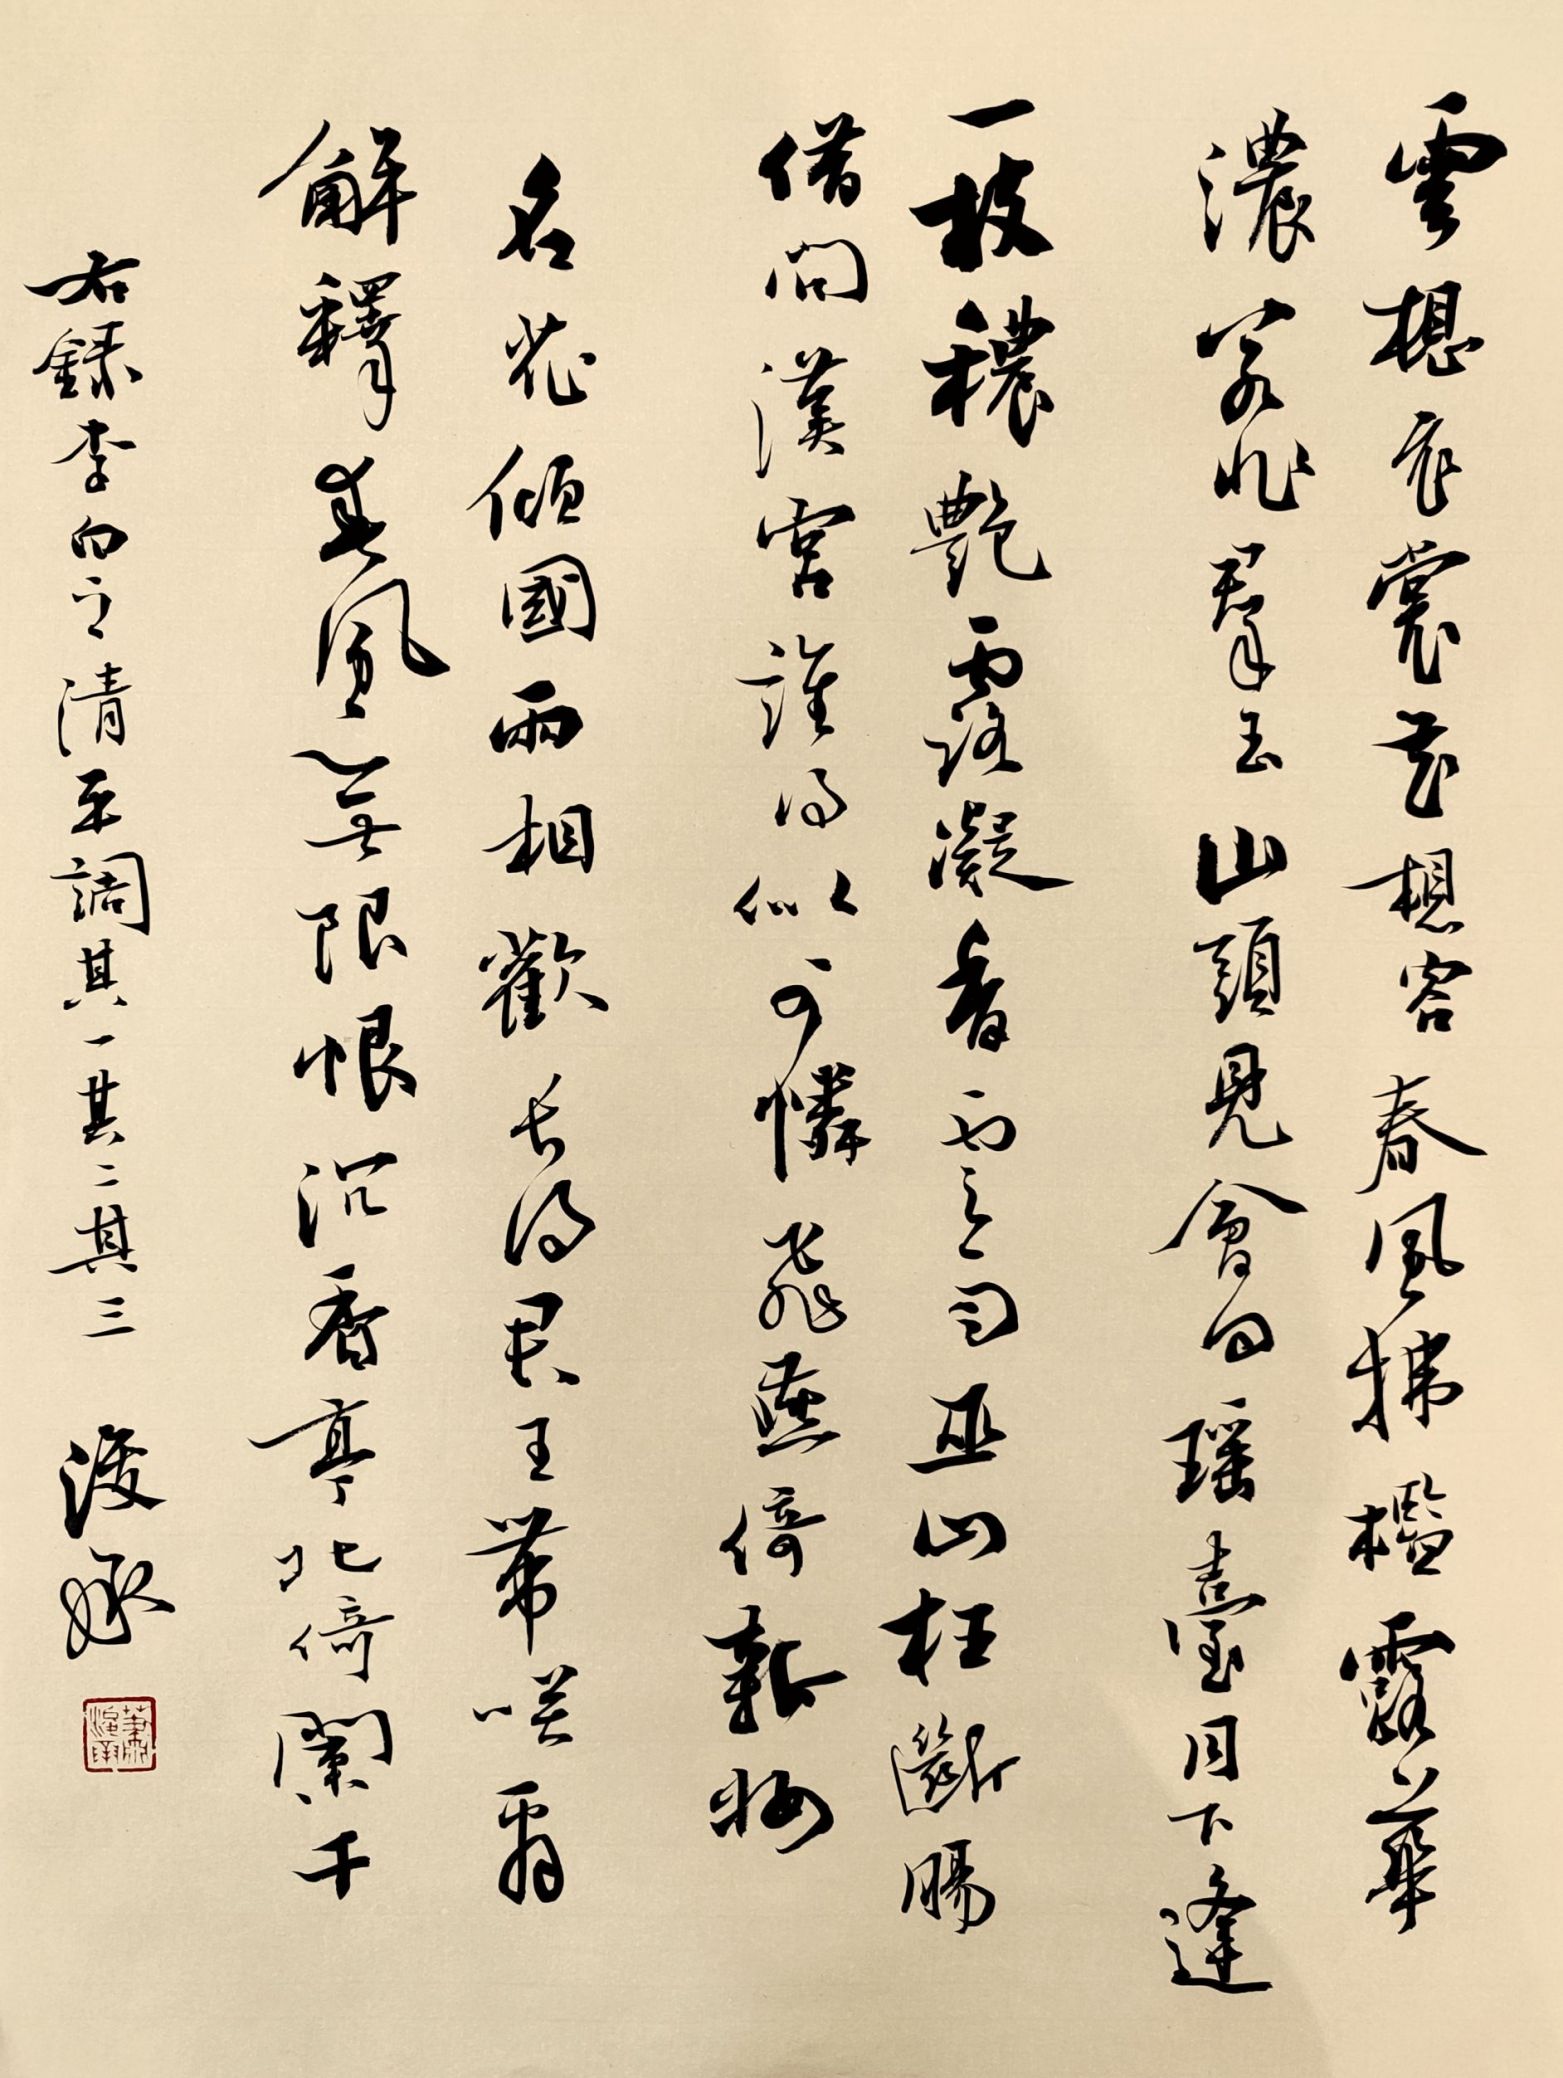 雲想衣裳花想容春風拂檻露華
濃若非羣玉山頭見會向瑶臺月下逢
一枝穠艶露凝香雲雨巫山枉斷腸
借問漢宮誰得似可憐飛燕倚新妝
名花傾國兩相歡長得君王帶咲看
解釋春風無限恨沉香亭北倚闌干
右録李白之清平調其一其二其三